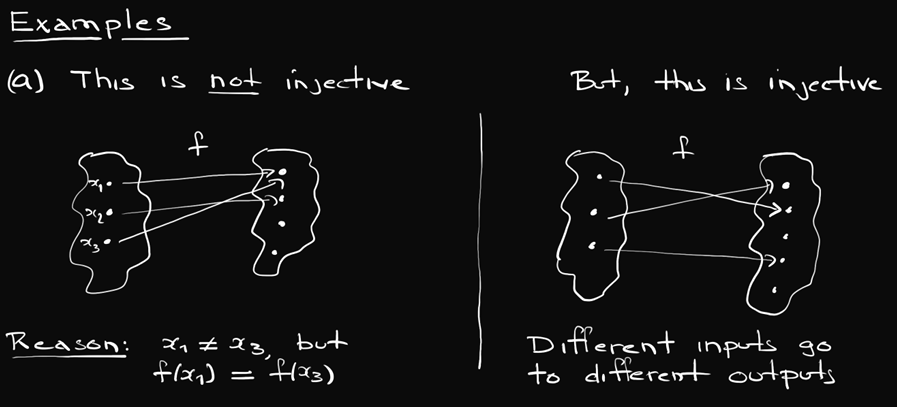 Examples
(a) This is not injective
f
x₁
x₂
x₃
Reason: x₁ ≠ x₃, but
f(x₁) = f(x₃)
But, this is injective
f
Different inputs go
to different outputs